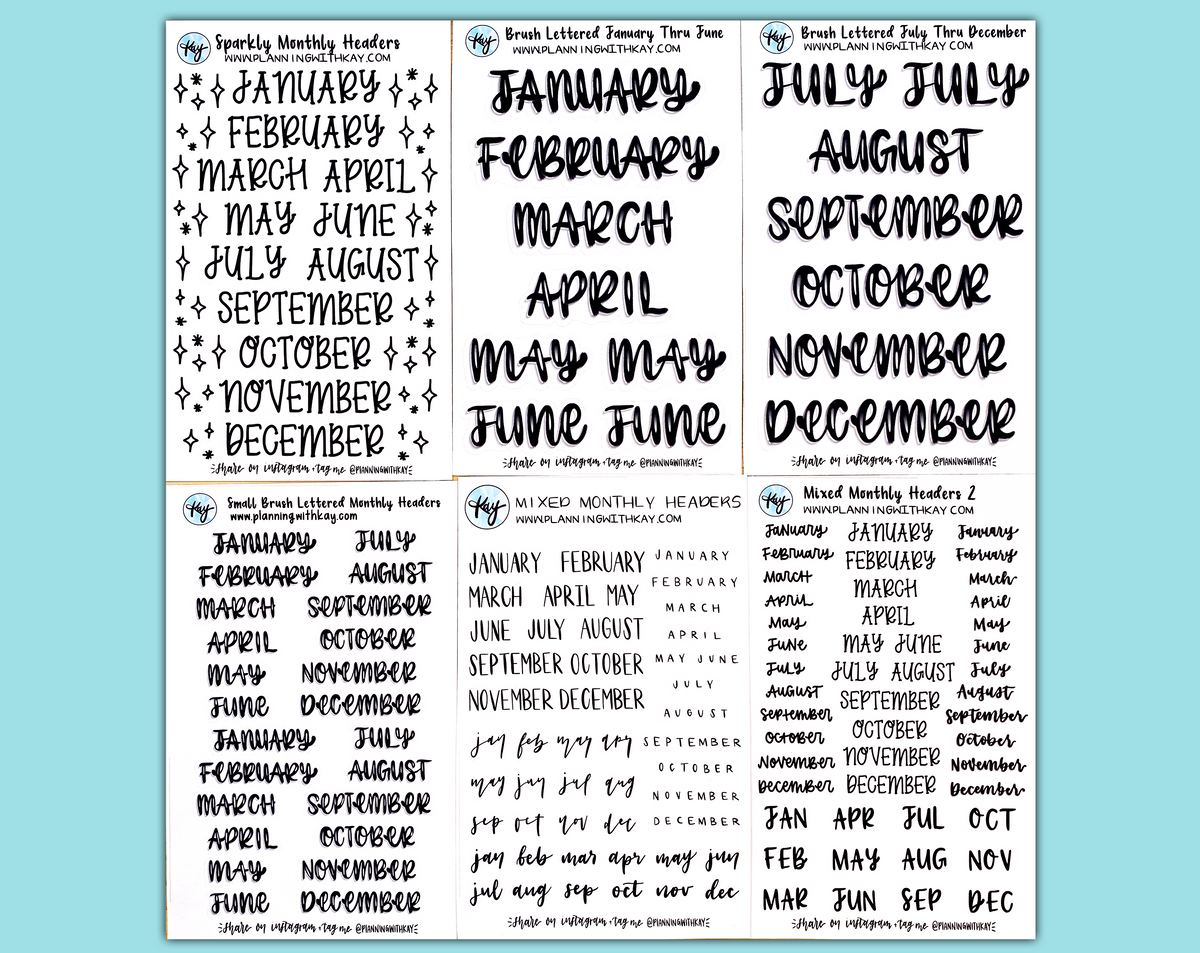 Kay
Sparkly Monthly Headers
WWW.PLANNINGWITHKAY.COM
JANUARY
FEBRUARY
MARCH APRIL
MAY JUNE
JULY AUGUST
SEPTEMBER
OCTOBER
NOVEMBER
DECEMBER
Share on instagram + tag me @PLANNINGWITHKAY
Kay
Brush Lettered January Thru June
WWW.PLANNINGWITHKAY.COM
JANUARY
FEBRUARY
MARCH
APRIL
MAY MAY
JUNE JUNE
Share on instagram + tag me @PLANNINGWITHKAY
Kay
Brush Lettered July Thru December
WWW.PLANNINGWITHKAY.COM
JULY JULY
AUGUST
SEPTEMBER
OCTOBER
NOVEMBER
DECEMBER
Share on instagram + tag me @PLANNINGWITHKAY
Kay
Small Brush Lettered Monthly Headers
www.planningwithkay.com
JANUARY JULY
FEBRUARY AUGUST
MARCH SEPTEMBER
APRIL OCTOBER
MAY NOVEMBER
JUNE DECEMBER
JANUARY JULY
FEBRUARY AUGUST
MARCH SEPTEMBER
APRIL OCTOBER
MAY NOVEMBER
JUNE DECEMBER
Share on instagram + tag me @PLANNINGWITHKAY
Kay
MIXED MONTHLY HEADERS
WWW.PLANNINGWITHKAY.COM
JANUARY FEBRUARY
MARCH APRIL MAY
JUNE JULY AUGUST
SEPTEMBER OCTOBER
NOVEMBER DECEMBER
JANUARY
FEBRUARY
MARCH
APRIL
MAY JUNE
JULY
AUGUST
SEPTEMBER
OCTOBER
NOVEMBER
DECEMBER
jan feb mar apr
may jun jul aug
sep oct nov dec
jan feb mar apr may jun
jul aug sep oct nov dec
Share on instagram + tag me @PLANNINGWITHKAY
Kay
Mixed Monthly Headers 2
WWW.PLANNINGWITHKAY.COM
JaNuaRy
FebRuaRy
MaRcH
ApRiL
May
JuNe
JuLy
AuGusT
SepTemBeR
OcToBeR
NovemBeR
DecemBeR
JANUARY
FEBRUARY
MARCH
APRIL
MAY JUNE
JULY AUGUST
SEPTEMBER
OCTOBER
NOVEMBER
DECEMBER
January
February
March
April
May
June
July
August
September
October
November
December
JAN APR JUL OCT
FEB MAY AUG NOV
MAR JUN SEP DEC
Share on instagram + tag me @PLANNINGWITHKAY